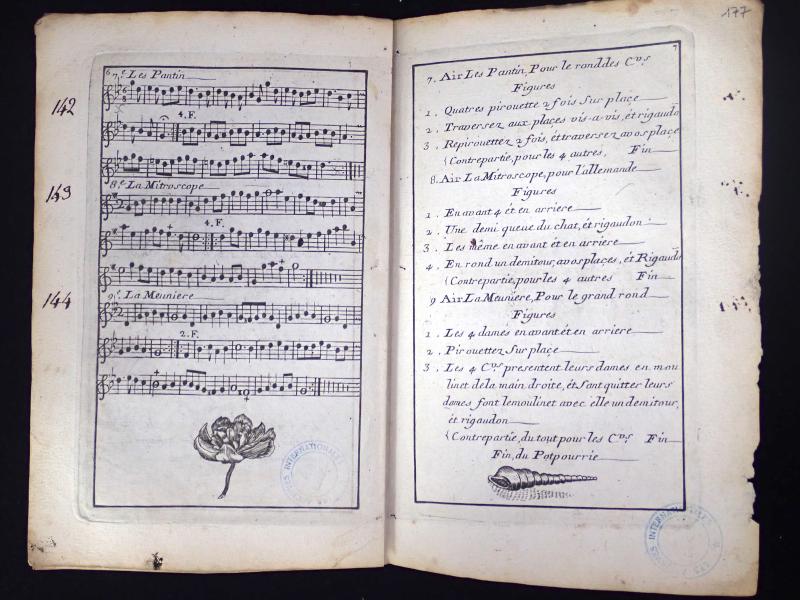 6
7.e Les Pantin
142
4. F.
8.e La Mitroscope
143
4. F.
9.e La Meuniere
144
2. F.
INTERNATIONALES
177
7
7. Air Les Pantin, Pour le ronddes C.vrs
Figures
1. Quatres pirouette 2 fois Sur plaçe
2. Traversez aux places vis-a-vis, ét rigaudo
3. Repirouettez 2 fois, ét traversez avos plaçe
(Contrepartie, pour les 4 autres, Fin
8. Air La Mitroscope, pour l'allemande
Figures
1. En avant 4 ét en arriere
2. Une demi queue du chat, ét rigaudon
3. Les même en avant ét en arriere
4. En rond un demitour, avos plaçes, ét Rigaudo
(Contrepartie, pour les 4 autres Fin
9 Air La Meuniere, Pour le grand rond
Figures
1. Les 4 damés en avant ét en arriere
2. Pirouettez Sur plaçe
3. Les 4 C.vrs presentent leurs dames en mou
linet dela main droite, ét Sant quitter leurs
dames font lemoulinet avec elle un demitour,
ét rigaudon
(Contrepartie, du tout pour les C.vrs Fin
Fin, du Potpourrie